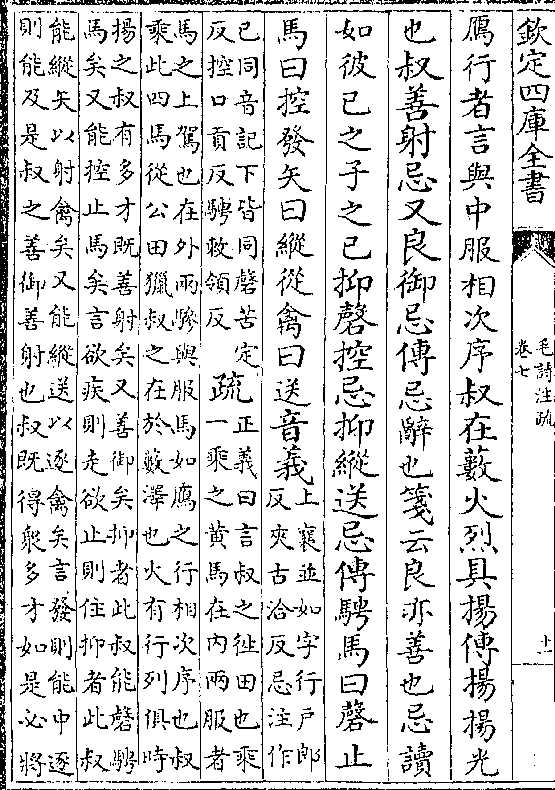 欽定四庫全書
毛詩注疏
卷七
十一
鴈行者言與中服相次序叔在藪火烈具揚傳揚揚光
也叔善射忌又良御忌傳忌辭也箋云良亦善也忌讀
如彼已之子之已抑磬控忌抑縱送忌傳騁馬曰磬止
馬曰控發矢曰縱從禽曰送音義
上襄並如字行戸郎
反夾古洽反忌注作
已同音記下皆同磬苦定
反控口貢反騁敕領反
疏
正義曰言叔之徃田也乘
一乘之黄馬在内兩服者
馬之上駕也在外兩驂與服馬如鴈之行相次序也叔
乘此四馬從公田獵叔之在於藪澤也火有行列俱時
揚之叔有多才既善射矣又善御矣抑者此叔能磬騁
馬矣又能控止馬矣言欲疾則走欲止則住抑者此叔
能縱矢以射禽矣又能縱送以逐禽矣言發則能中逐
則能及是叔之善御善射也叔既得衆多才如是必將